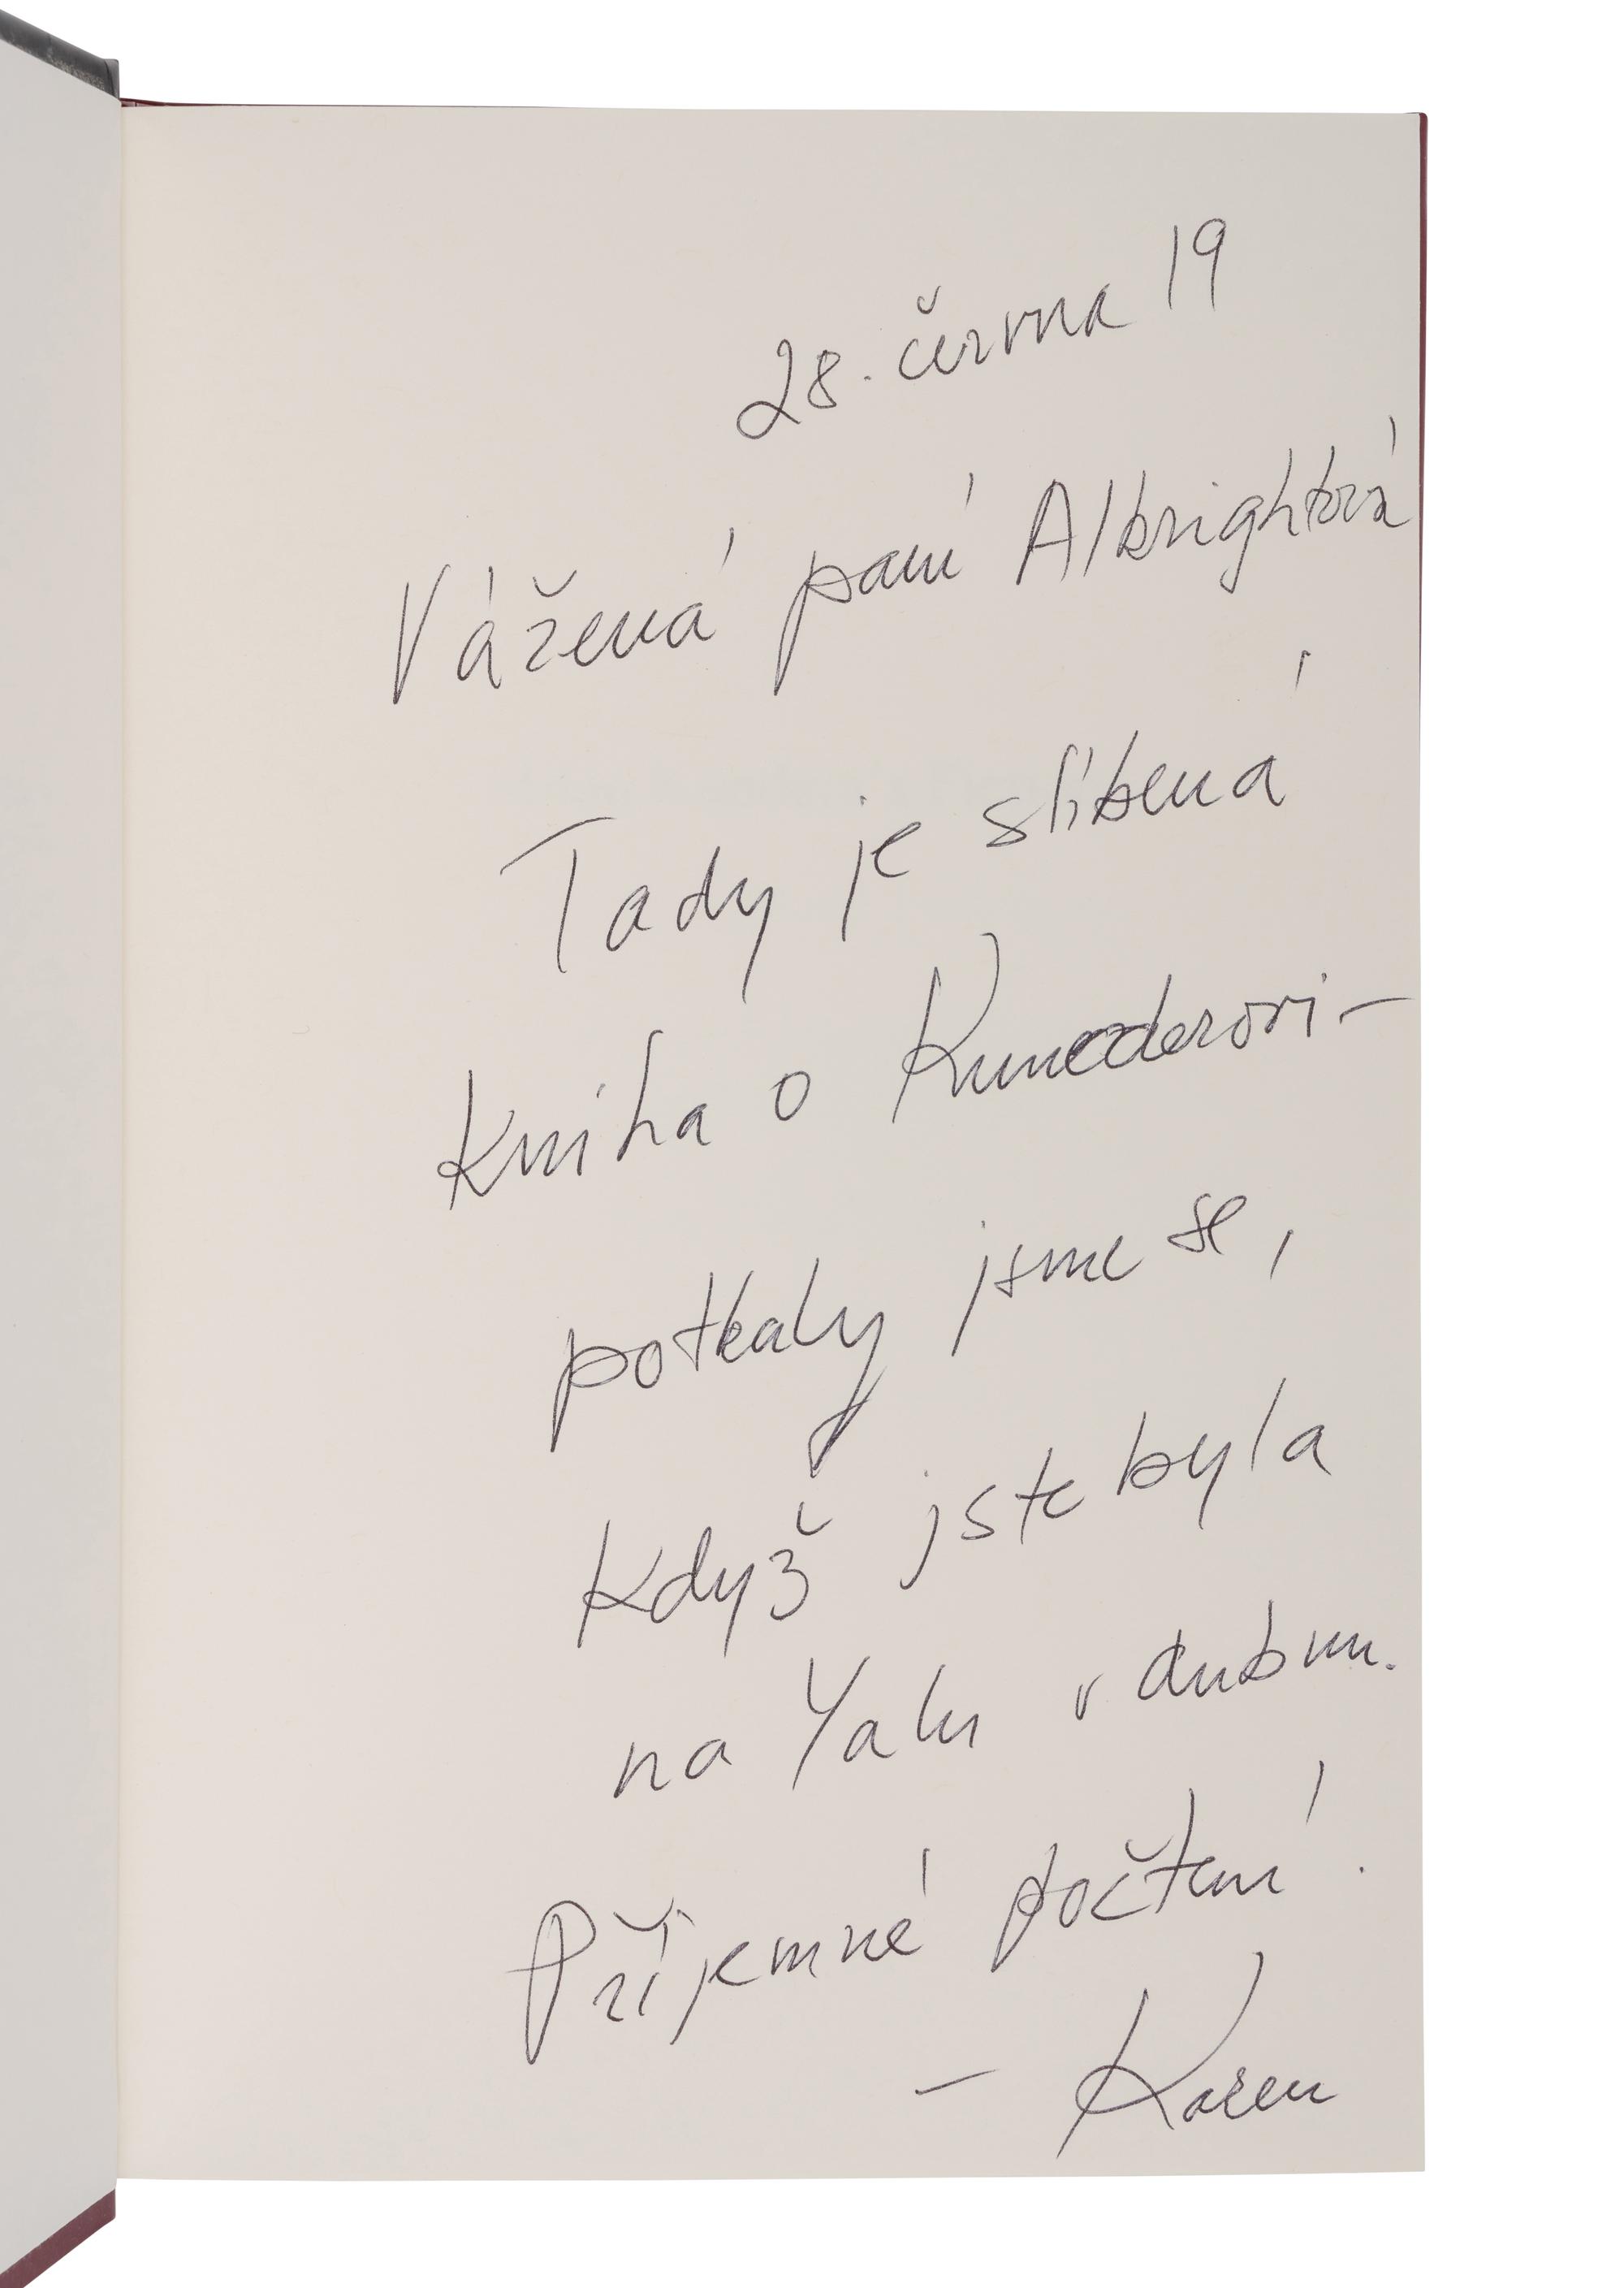 28. června 19
Vážená paní Albrightová
Tady je slíbená
kniha o Kunderovi –
potkaly jsme se,
když jste byla
na Yalu v dubnu.
Příjemné počtení.
– Karen